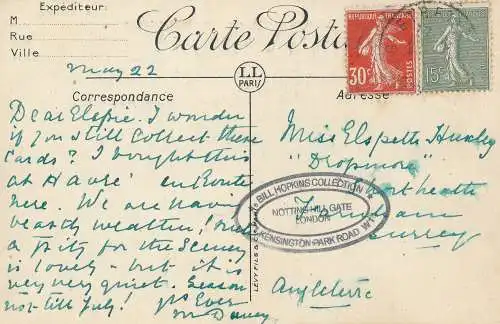 Expéditeur:
M
Rue
Ville
Carte Posta
REPUBLIQUE FRANÇAISE
30c
POSTES
15c
LL
PARIS
May 22
Correspondance
Adresse
Dear Elspie. I wonder
if you still collect these
cards? I bought this
at Havre en route
here. We are having
beastly weather! Such
a pity for the scenery
is lovely - but it is
very very quiet. Season
not till July! Yrs Ever
M
Miss Elspeth Huxley
"Dropmore"
Heath
Farnham
Surrey
Angleterre
BILL HOPKINS COLLECTION
NOTTING HILL GATE
LONDON
KENSINGTON PARK ROAD W11
LEVY FILS &